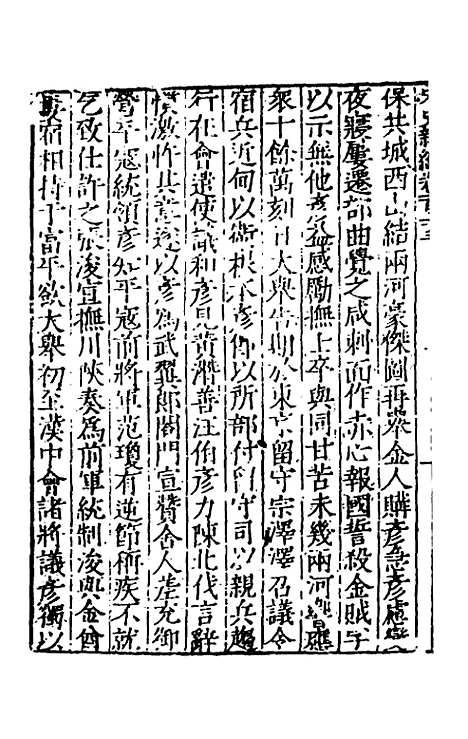 保共城西山結兩河豪傑圖再舉金人購彥急彥慮變
夜寢屢遷部曲覺之咸刺面作赤心報國誓殺金賊字
以示無他彥益感勵撫士卒與同甘苦未幾兩河響應
衆十餘萬刻日大舉告期於東京留守宗澤澤召議令
宿兵近甸以衛根本彥即以所部付留守司以親兵趨
行在會遣使議和彥見黃潛善汪伯彥力陳北伐言辭
憤激忤其意遂以彥爲武翼郎閤門宣贊舍人差充御
營平寇統領彥知平寇前將軍范瓊有逆節稱疾不就
乞致仕許之張浚宣撫川陝奏爲前軍統制浚與金酋
婁宿相持于富平欲大舉初至漢中會諸將議彥獨以